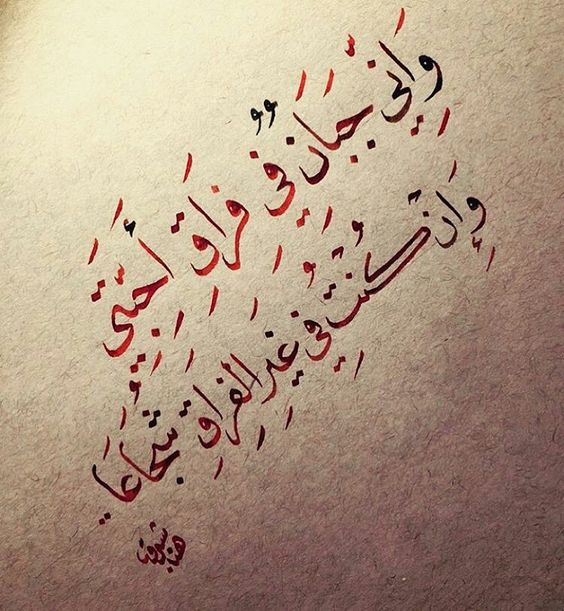 وَإِنِّي جَبَانٌ فِي فِرَاقِ أَحِبَّتِي
وَإِنْ كُنْتُ فِي غَيْرِ الفِرَاقِ شُجَاعَا